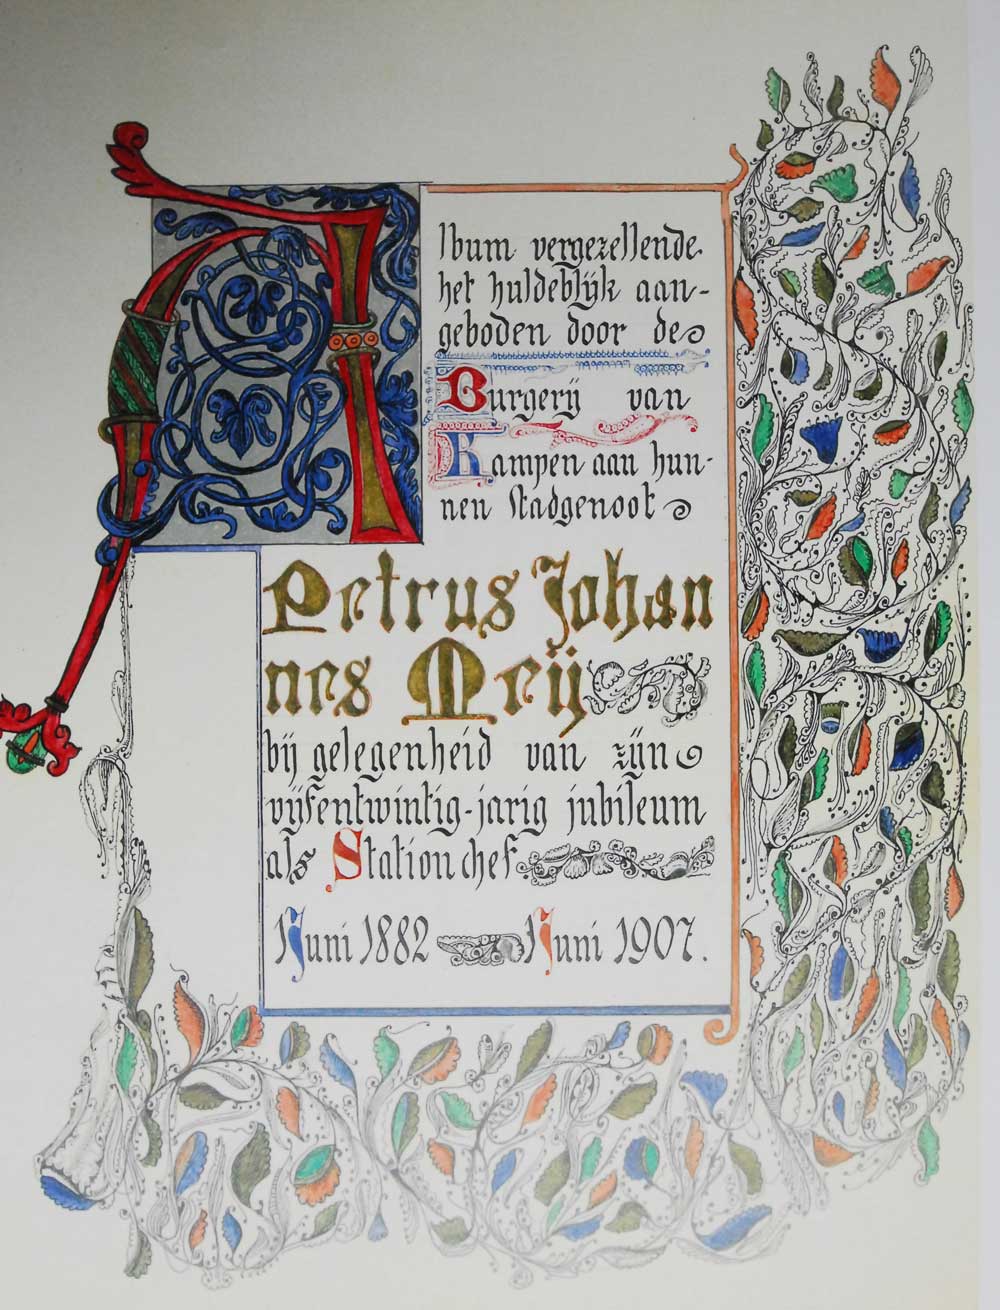 Album vergezellende
het huldeblijk aan-
geboden door de
Burgerij van
Kampen aan hun-
nen stadgenoot
Petrus Johan
nes Meij
bij gelegenheid van zijn
vijfentwintig-jarig jubileum
als Stationchef
1 Juni 1882 1 Juni 1907.